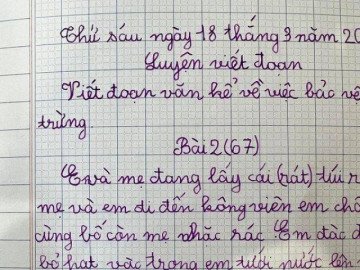 Thứ sáu ngày 18 tháng 3 năm 20
Luyện viết đoạn
Viết đoạn văn kể về việc bảo vệ
trừng.
Bài 2 (67)
E và mẹ đang lấy cái (rát) túi r
mẹ và em đi đến kông viên em chỗ
cùng bố còn mẹ nhăc rác. Em đăc đ
bỏ hạt vàc trong em tưới nước lên